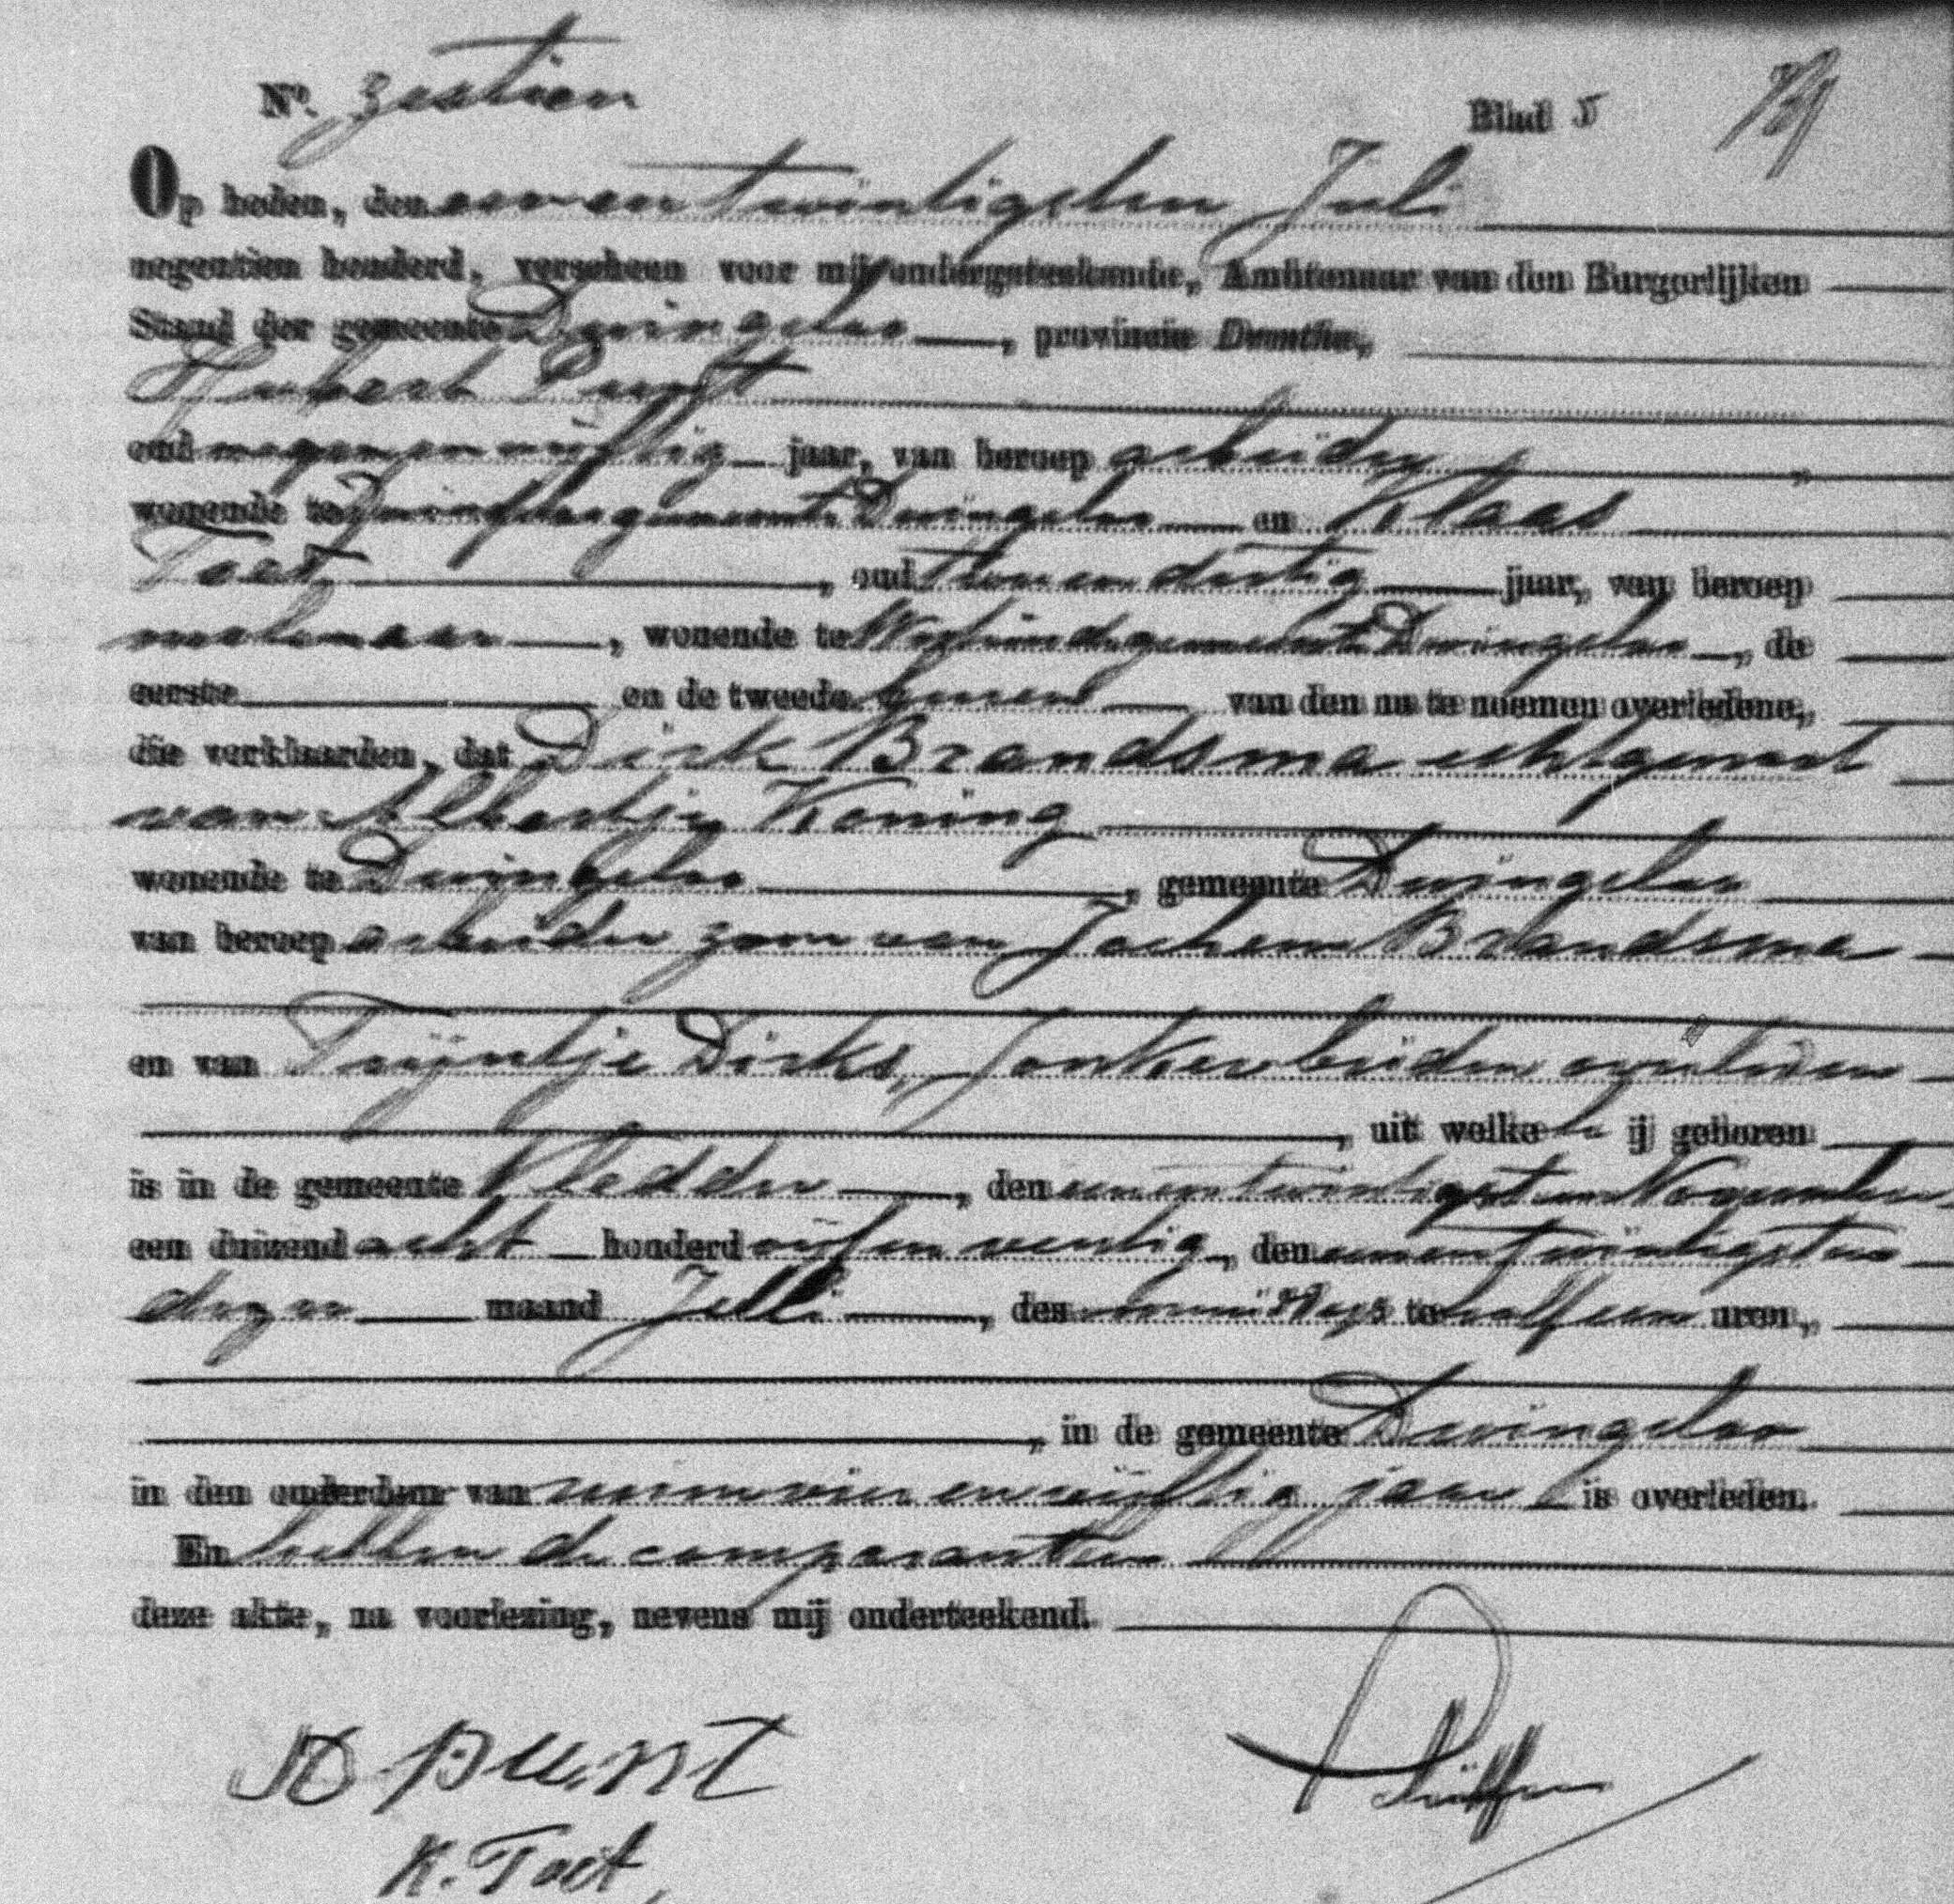 No. zestien
Blad 5
Op heden, den eenentwintigsten Juli
negentien honderd, verscheen voor mij ondergeteekende, Ambtenaar van den Burgerlijken
Stand der gemeente Dwingeloo, provincie Drenthe,
Hubert Punt
oud negenenvijftig jaar, van beroep arbeider,
wonende te Dwingeloo gemeente Dwingeloo en Klaas
Toet, oud twee en dertig jaar, van beroep
molenaar, wonende te Westeinde gemeente Dwingeloo, de
eerste en de tweede buren van den na te noemen overledene,
die verklaarden, dat Dirk Brandsma echtgenoot
van Albertje Koning
wonende te Dwingeloo, gemeente Dwingeloo
van beroep arbeider zoon van Jochem Brandsma
en van Trijntje Dirks Jonker beiden overleden
, uit welke hij geboren
is in de gemeente Vledder, den eenentwintigsten November
een duizend acht honderd vijfenveertig, den eenentwintigsten
dezer maand Juli, des voormiddags te half een uren,
, in de gemeente Dwingeloo
in den ouderdom van ruim vier en vijftig jaar is overleden.
En hebben de comparanten
deze akte, na voorlezing, nevens mij onderteekend.
H Punt
K. Toet,